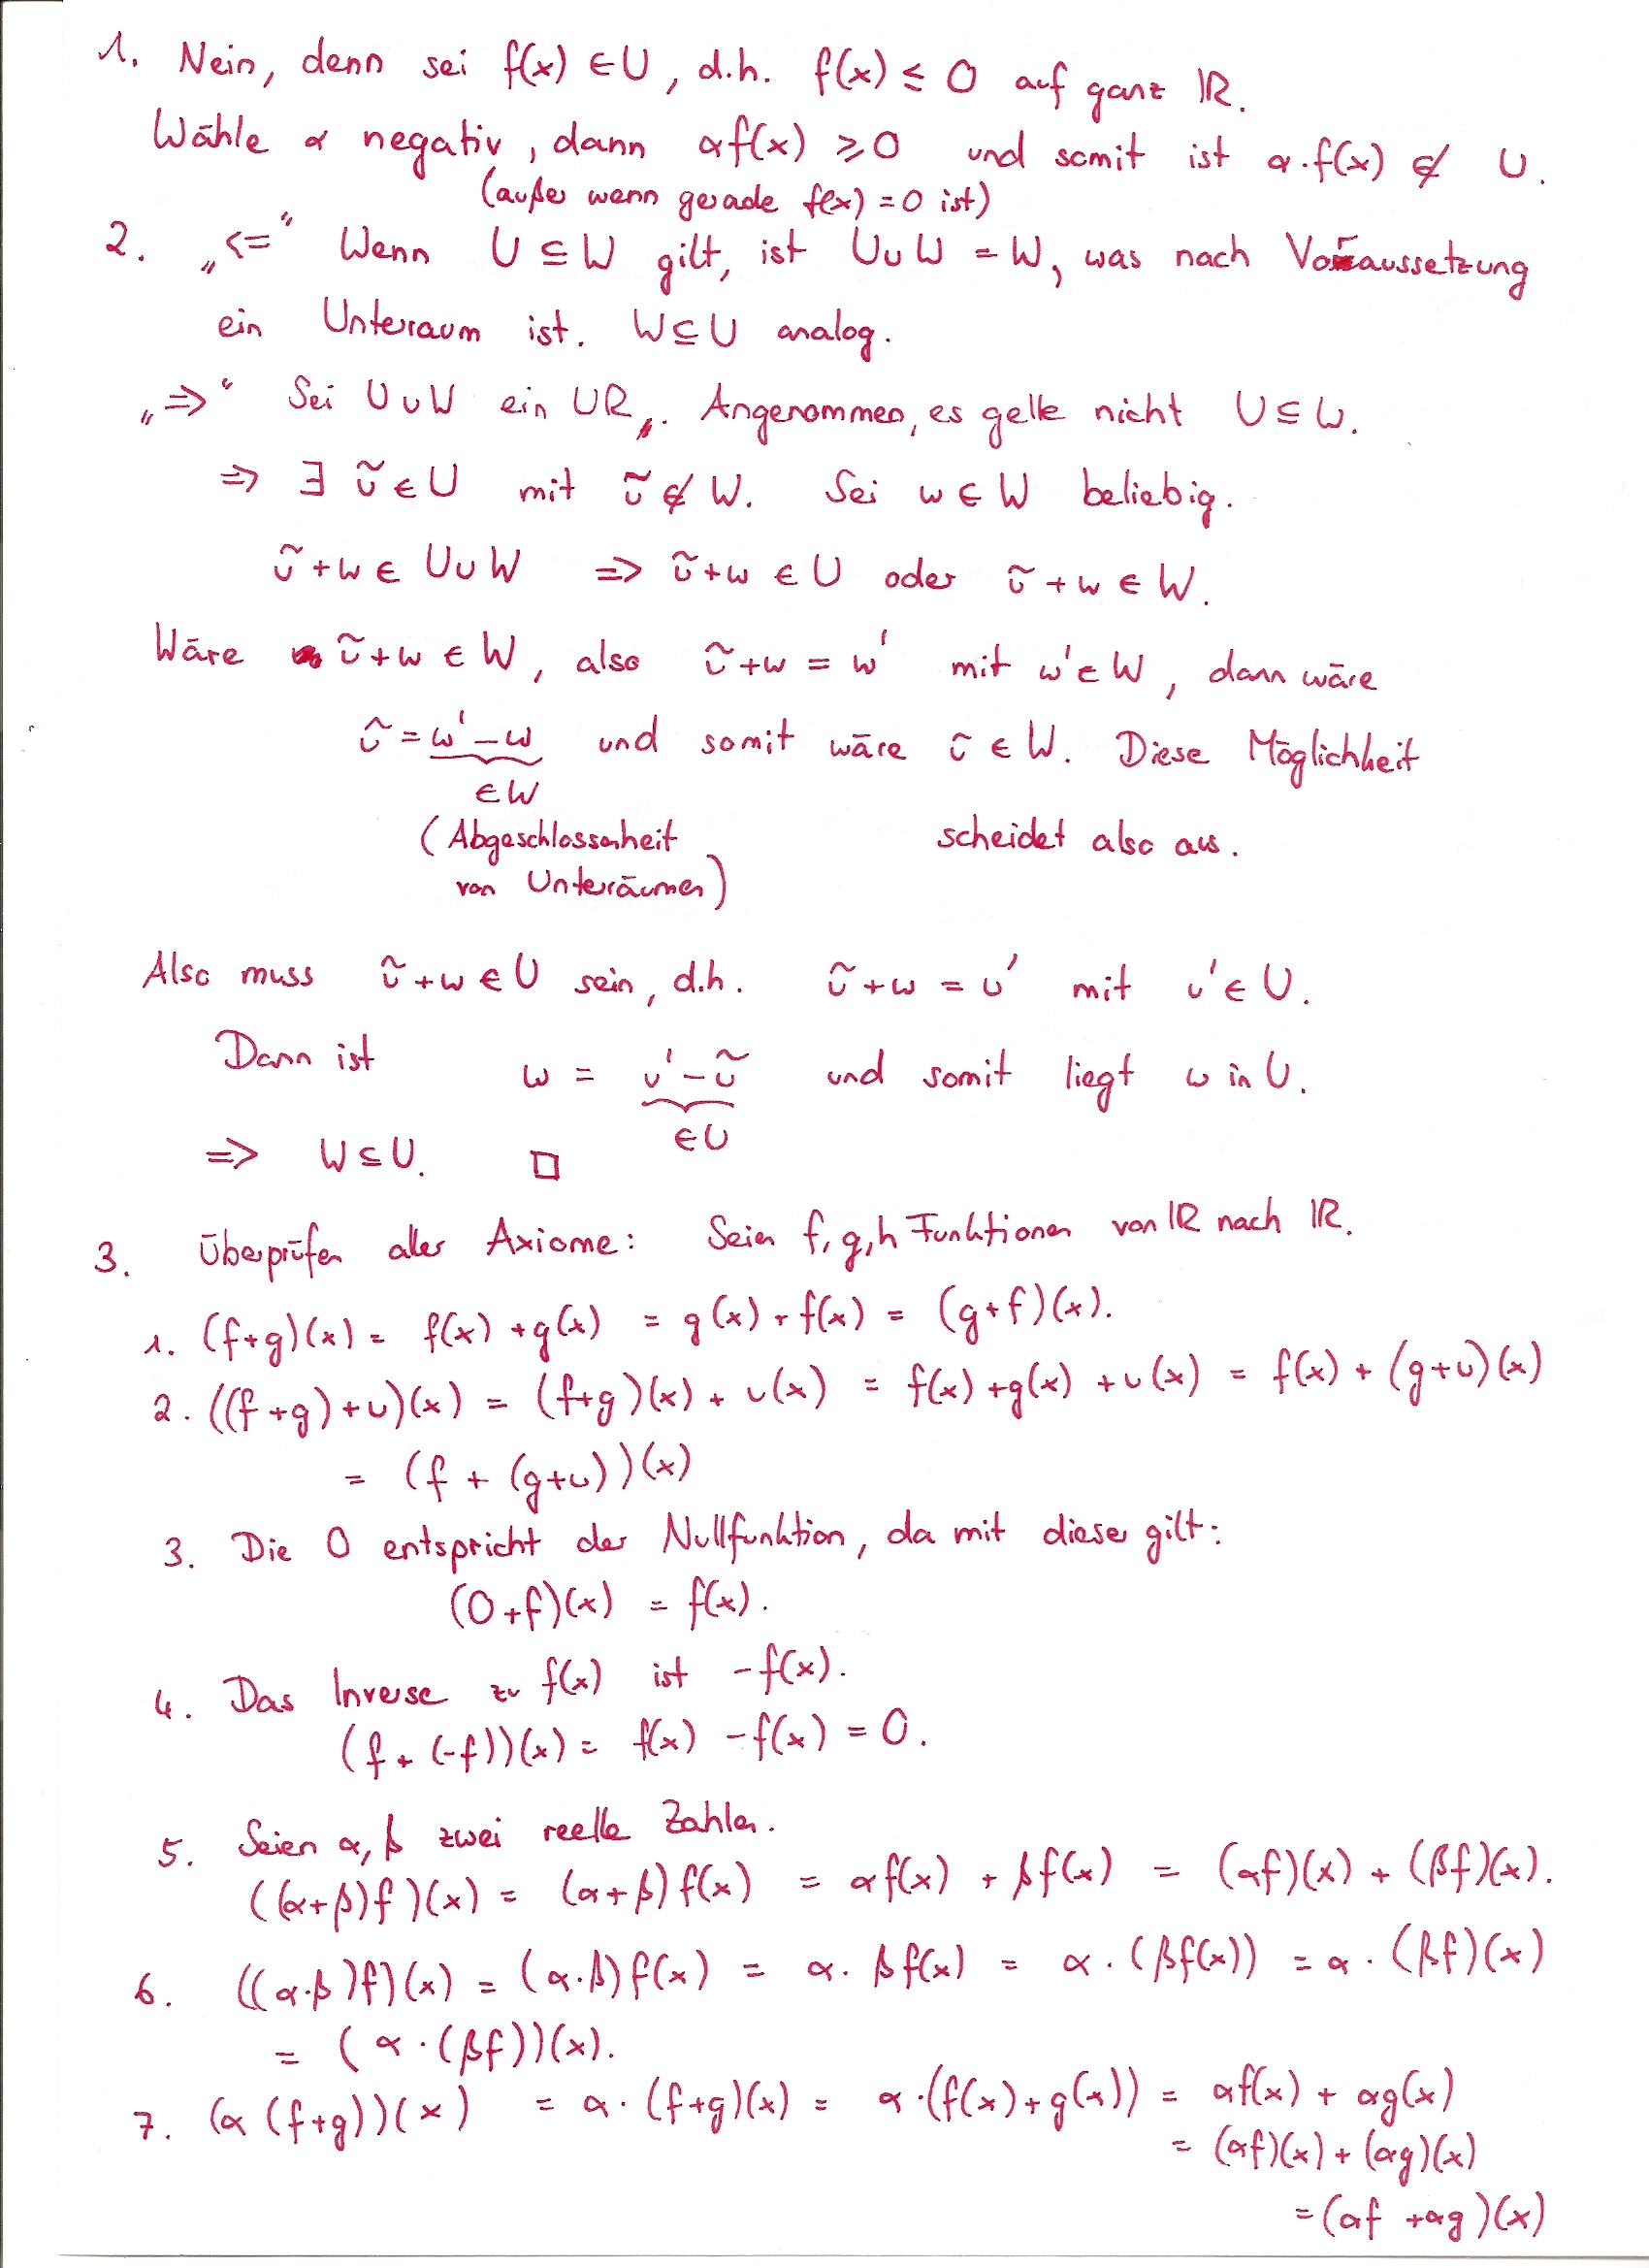 1. Nein, denn sei f(x) ∈ U, d.h. f(x) ≤ 0 auf ganz ℝ.
Wähle α negativ, dann αf(x) ⩾ 0 und somit ist α·f(x) ∉ U.
(außer wenn gerade f(x) = 0 ist)
2. „<=“ Wenn U ⊆ W gilt, ist U∪W = W, was nach Voraussetzung
ein Unteraum ist. W⊆U analog.
„=>“ Sei U∪W ein UR. Angenommen, es gelte nicht U ⊆ W.
=> ∃ ũ ∈ U mit ũ ∉ W. Sei w ∈ W beliebig.
ũ + w ∈ U∪W => ũ + w ∈ U oder ũ + w ∈ W.
Wäre ũ + w ∈ W, also ũ + w = w' mit w' ∈ W, dann wäre
ũ = w' − w und somit wäre ũ ∈ W. Diese Möglichkeit
∈ W
(Abgeschlossenheit scheidet also aus.
von Unterräumen)
Also muss ũ + w ∈ U sein, d.h. ũ + w = u' mit u' ∈ U.
Dann ist w = u' − ũ und somit liegt w in U.
∈ U
=> W ⊆ U. □
3. Überprüfen aller Axiome: Seien f, g, h Funktionen von ℝ nach ℝ.
1. (f+g)(x) = f(x) + g(x) = g(x) + f(x) = (g+f)(x).
2. ((f+g)+u)(x) = (f+g)(x) + u(x) = f(x) + g(x) + u(x) = f(x) + (g+u)(x)
= (f + (g+u))(x)
3. Die 0 entspricht der Nullfunktion, da mit dieser gilt:
(0+f)(x) = f(x).
4. Das Inverse zu f(x) ist −f(x).
(f + (−f))(x) = f(x) − f(x) = 0.
5. Seien α, β zwei reelle Zahlen.
((α+β)f)(x) = (α+β)f(x) = αf(x) + βf(x) = (αf)(x) + (βf)(x).
6. ((α·β)f)(x) = (α·β)f(x) = α·βf(x) = α·(βf(x)) = α·(βf)(x)
= (α·(βf))(x).
7. (α(f+g))(x) = α·(f+g)(x) = α·(f(x)+g(x)) = αf(x) + αg(x)
= (αf)(x) + (αg)(x)
= (αf + αg)(x)